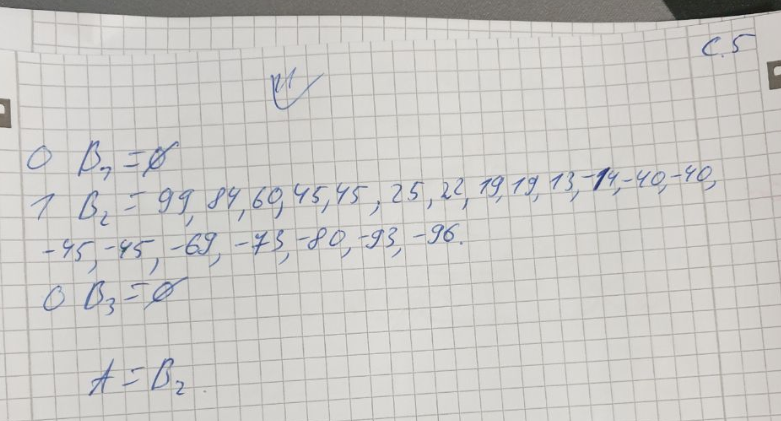 с.5
0 B₁ = ∅
1 B₂ = 99, 84, 60, 45, 45, 25, 22, 19, 19, 13, -14, -40, -40,
-45, -45, -69, -73, -80, -93, -96.
0 B₃ = ∅
A = B₂.